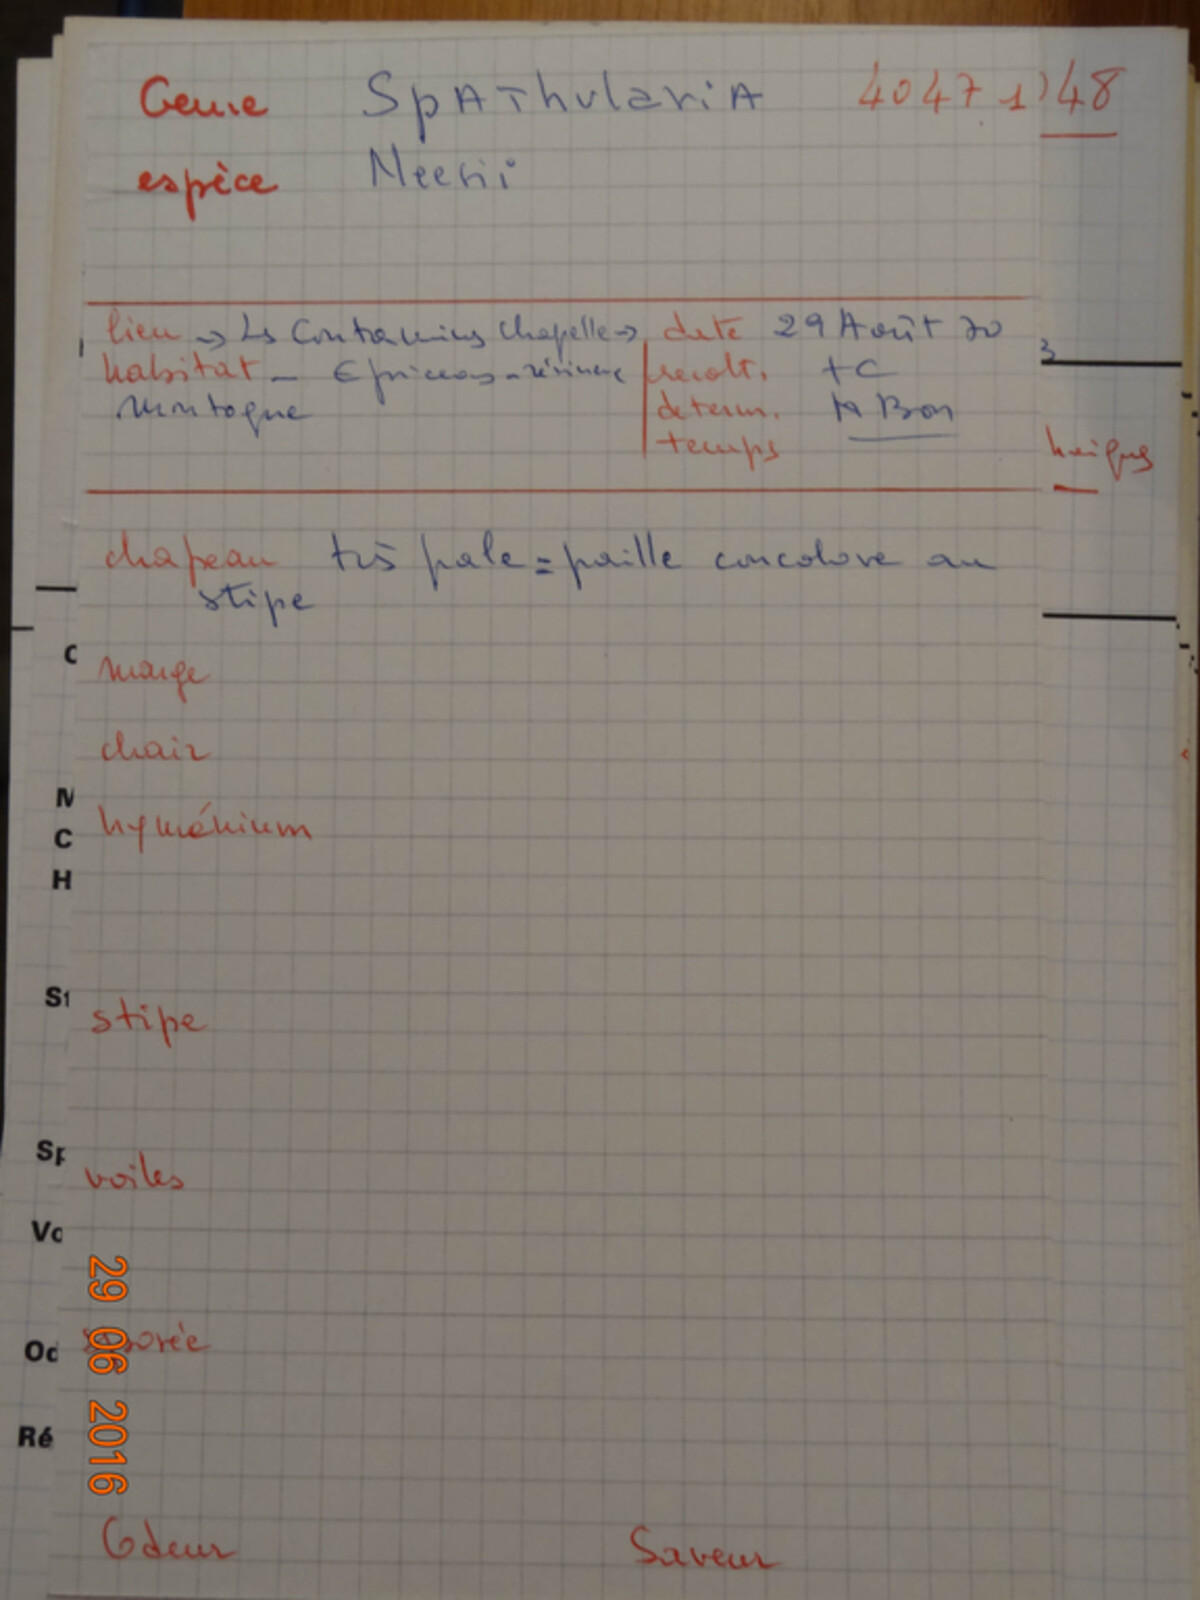 Genre SpAThulariA 40471)48
espèce Neesii
lieu → Les Contamines Chapelle → date 29 Août 70
habitat - Epiceas - résineux récolt. tC
montagne determ. M Bon
temps
haigus
chapeau très pale = paille concolore au
stipe
C
marge
chair
M
C hyménium
H
St
stipe
Sp
voiles
Vo
sporée
Od
Ré
Odeur Saveur
29 06 2016